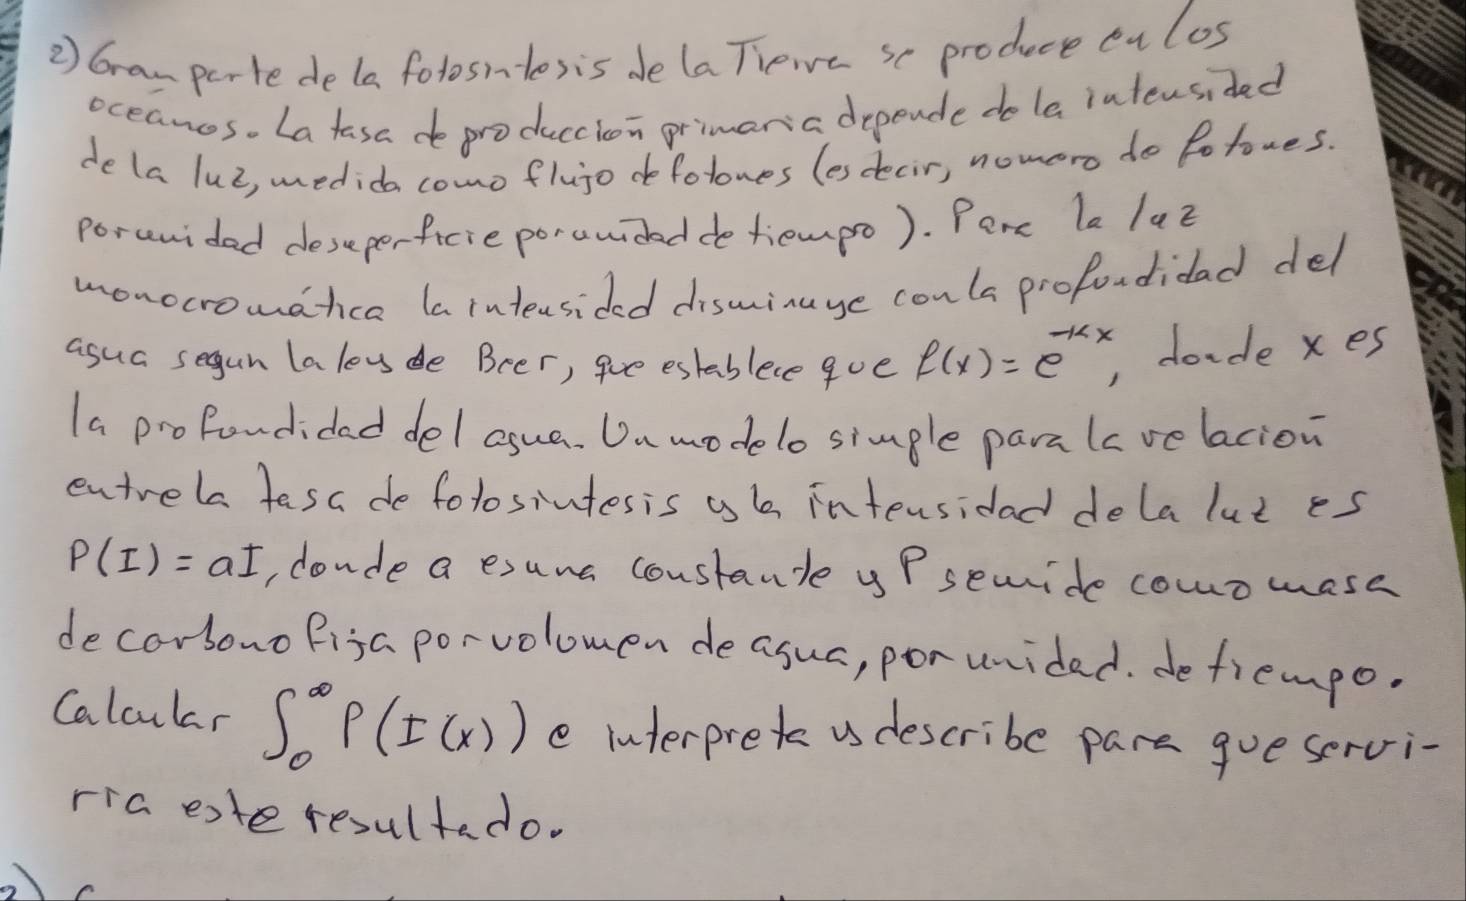 2) Gran parte de la fotosintesis de la Tierra se produce en los
oceános. La tasa de producción primaria depende de la intensidad
de la luz, medida como flujo de fotones (es decir, nomero de fotones.
por unidad de superficie por unidad de tiempo). Para la luz
monocromática la intensidad disminuye con la profundidad del
agua segun la ley de Beer, que establece que f(x) = e^{-kx}, donde x es
la profundidad del agua. Un modelo simple para la relación
entre la tasa de fotosintesis y la intensidad de la luz es
P(I) = aI, donde a es una constante y P se mide como masa
de carbono fija por volumen de agua, por unidad. de tiempo.
Calcular ∫_0^∞ P(I(x)) e interpreta y describe para que servi-
ria este resultado.